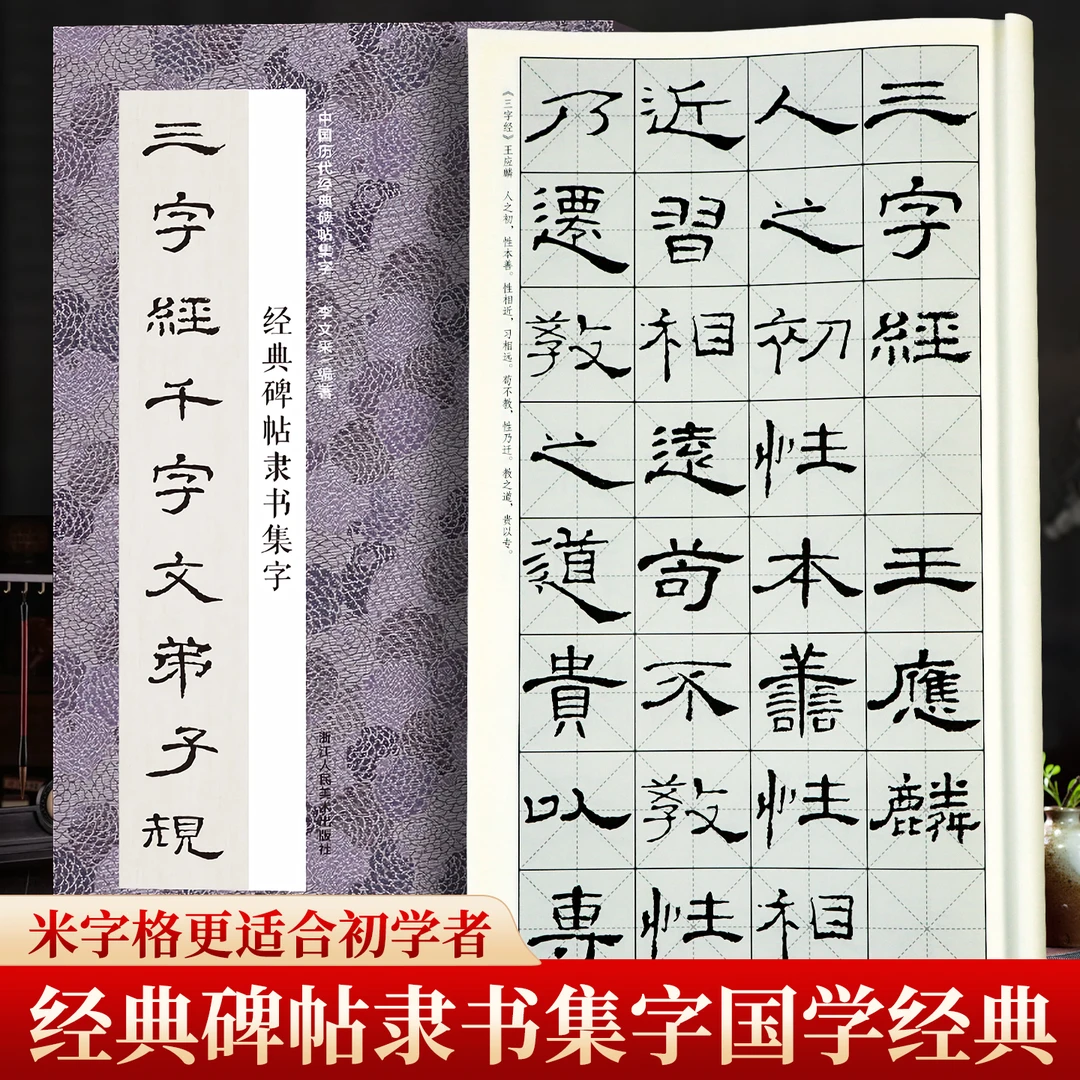 三字經千字文弟子規
经典碑帖隶书集字
中国历代经典碑帖集字 李文采 编著
浙江人民美术出版社
三字經 王應麟
人之初性本善性相
近習相遠苟不教性
乃遷教之道貴以專
《三字经》王应麟 人之初，性本善。性相近，习相远。苟不教，性乃迁。教之道，贵以专。
米字格更适合初学者
经典碑帖隶书集字国学经典